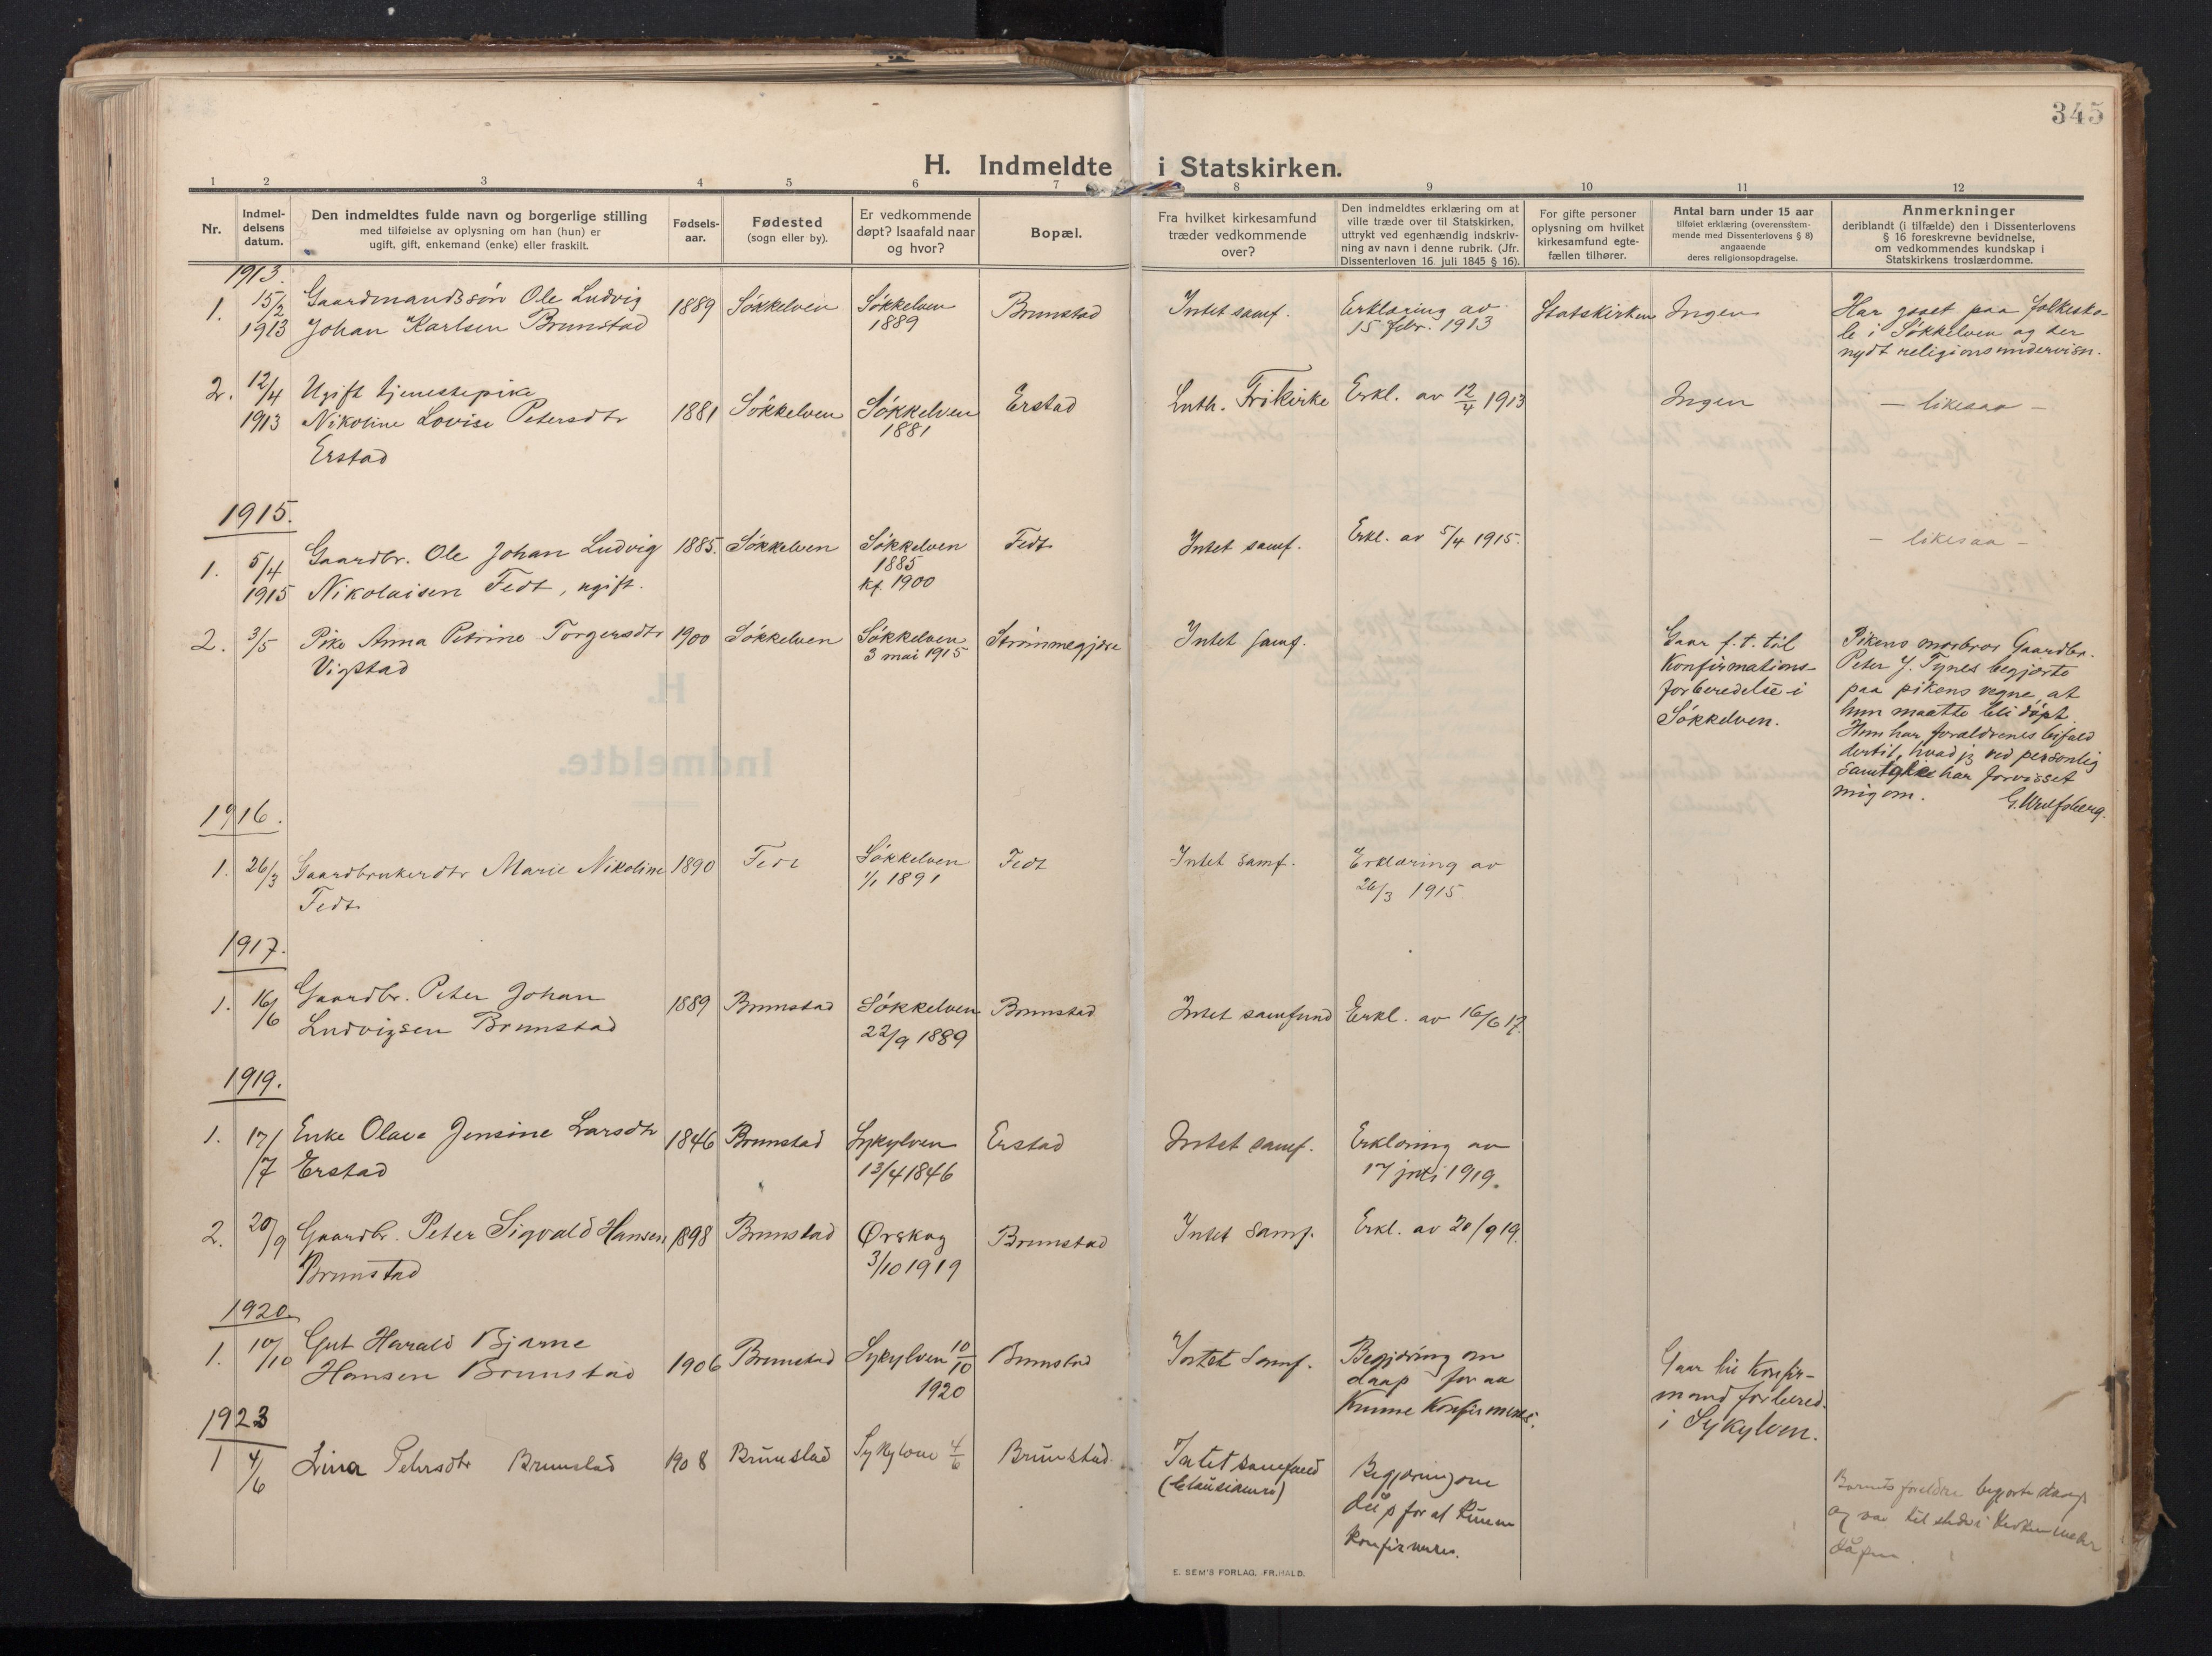 345
H. Indmeldte i Statskirken.
1 2 3 4 5 6 7 8 9 10 11 12
Nr.
Indmel-
delsens
datum.
Den indmeldtes fulde navn og borgerlige stilling
med tilføielse av oplysning om han (hun) er
ugift, gift, enkemand (enke) eller fraskilt.
Fødsels-
aar.
Fødested
(sogn eller by).
Er vedkommende
døpt? Isaafald naar
og hvor?
Bopæl.
Fra hvilket kirkesamfund
træder vedkommende
over?
Den indmeldtes erklæring om at
ville træde over til Statskirken,
uttrykt ved egenhændig indskriv-
ning av navn i denne rubrik. (Jfr.
Dissenterloven 16. juli 1845 § 16).
For gifte personer
oplysning om hvilket
kirkesamfund egte-
fællen tilhører.
Antal barn under 15 aar
tilføiet erklæring (overensstem-
mende med Dissenterlovens § 8)
angaaende
deres religionsopdragelse.
Anmerkninger
deriblandt (i tilfælde) den i Dissenterlovens
§ 16 foreskrevne bevidnelse,
om vedkommendes kundskap i
Statskirkens troslærdomme.
1913.
1.
15/2
1913
Gaardmandssøn Ole Ludvig
Johan Karlsen Brunstad
1889
Søkkelven
Søkkelven
1889
Brunstad
Intet samf.
Erklæring av
15 febr. 1913
Statskirken
Ingen
Har gaaet paa folkesko-
le i Søkkelven og der
nydt religionsundervisn.
2.
12/4
1913
Ugift tjenestepike
Nikoline Lovise Petersdtr
Erstad
1881
Søkkelven
Søkkelven
1881
Erstad
Luth. Frikirke
Erkl. av 12/4 1913
Ingen
– likesaa –
1915.
1.
5/4
1915
Gaardbr. Ole Johan Ludvig
Nikolaisen Fedt, ugift.
1885.
Søkkelven
Søkkelven
1885
kf. 1900
Fedt
Intet samf.
Erkl. av 5/4 1915.
– likesaa –
2.
3/5
Pike Anna Petrine Torgersdtr
Vigstad
1900
Søkkelven
Søkkelven
3 mai 1915
Strømmegjære
Intet samf.
Gaar f.t. til
Konfirmations-
forberedelse i
Søkkelven.
Pikens morbror Gaardbr.
Peter J. Tynes begjærte
paa pikens vegne, at
hun maatte bli døpt.
Hun har forældrenes bifald
dertil, hvad jeg ved personlig
samtykke har forvisset
mig om. G. Wulfsberg.
1916.
1.
26/3
Gaardbrukerdtr Marie Nikoline
Fedt
1890
Fedt
Søkkelven
1/1 1891
Fedt
Intet samf.
Erklæring av
26/3 1915
1917.
1.
16/6
Gaardbr. Peter Johan
Ludvigsen Brunstad
1889
Brunstad
Søkkelven
22/9 1889
Brunstad
Intet samfund
Erkl. av 16/6 17.
1919.
1.
17/7
Enke Olave Jensine Larsdtr
Erstad
1846
Brunstad
Sykylven
13/4 1846
Erstad
Intet samf.
Erklæring av
17 juli 1919.
2.
20/9
Gaardbr. Peter Sigvald Hansen
Brunstad
1898
Brunstad
Ørskog
3/10 1919
Brunstad
Intet samf.
Erkl. av 20/9 19.
1920
1.
10/10
Gut Harald Bjarne
Hansen Brunstad
1906
Brunstad
Sykylven 10/10
1920
Brunstad
Intet samf.
Begjæring om
daap for aa
kunne konfirmeres.
Gaar til konfir-
mand forbered.
i Sykylven.
1923
1
4/6
Lina Petersdtr Brunstad
1908
Brunstad
Sykylven 4/6
Brunstad.
Intet samfund
Begjæring om
dåp for at kunne
konfirmeres.
Barnets foreldre begjærte daap
og var til stede i kirken under
dåpen.
E. SEM'S FORLAG, FR.HALD.